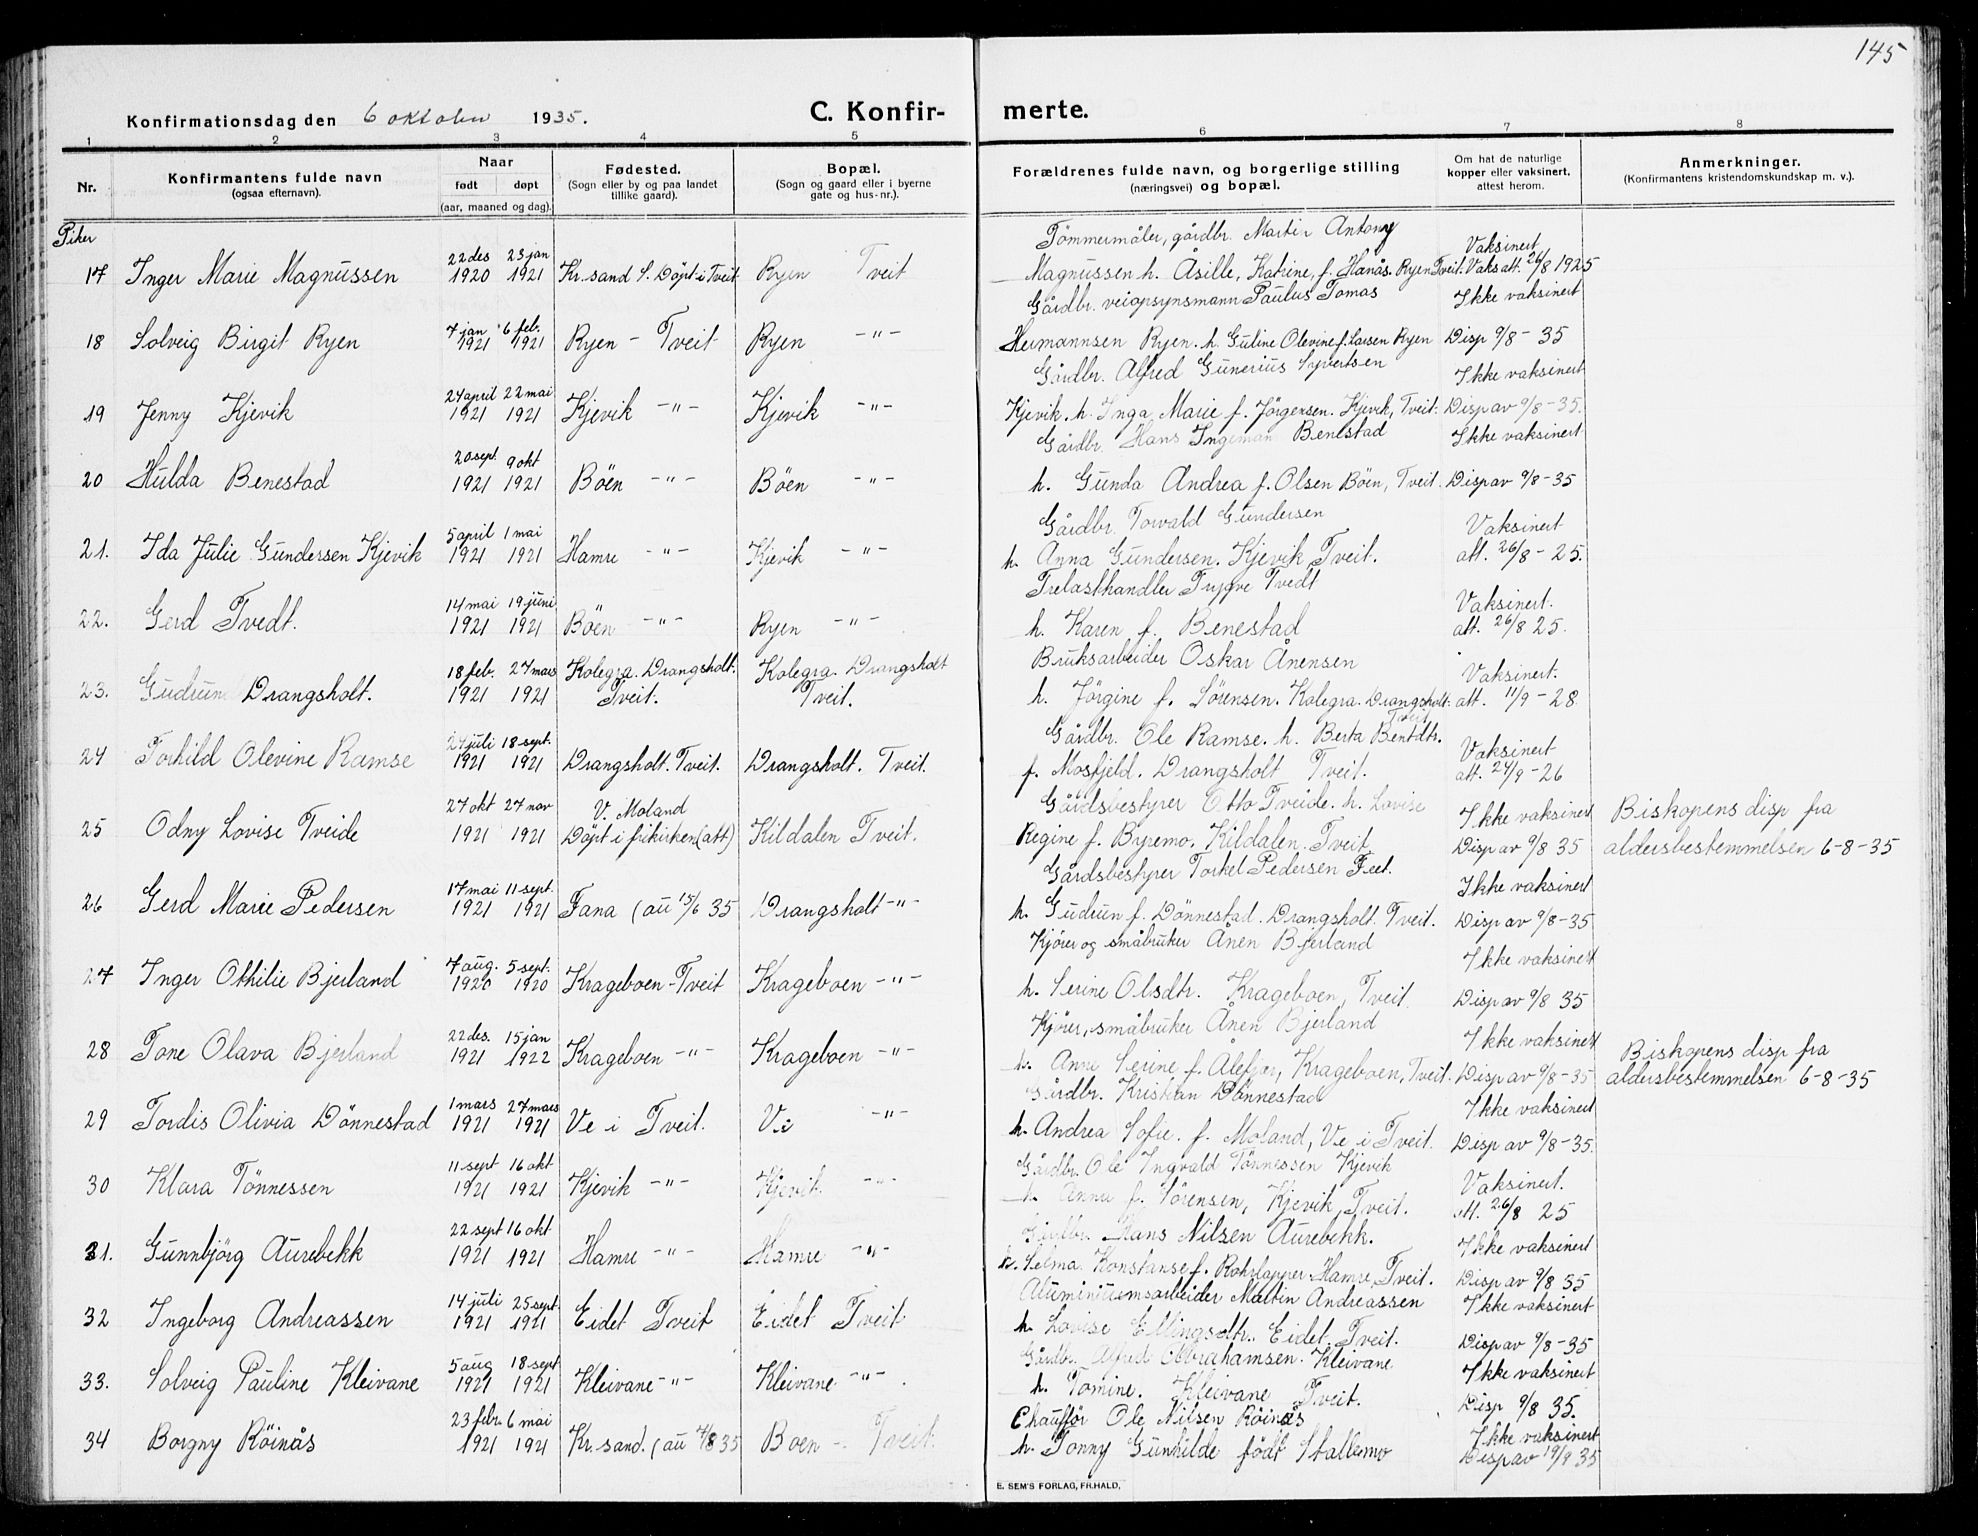 145
Konfirmationsdag den 6 oktober 1935.
C. Konfirmerte.
1 2 3 4 5 6 7 8
Nr.
Konfirmantens fulde navn
(ogsaa efternavn).
Naar
født døpt
(aar, maaned og dag).
Fødested.
(Sogn eller by og paa landet
tillike gaard).
Bopæl.
(Sogn og gaard eller i byerne
gate og hus-nr.).
Forældrenes fulde navn, og borgerlige stilling
(næringsvei) og bopæl.
Om hat de naturlige
kopper eller vaksinert,
attest herom.
Anmerkninger.
(Konfirmantens kristendomskundskap m. v.).
Piker
Tömmermåler, gårdbr. Martin Antony
22 des 23 jan Vaksinert
17 Inger Marie Magnussen 1920 1921 Kr.sand S. Döpt i Tveit Ryen Tveit Magnussen h. Åsille, Katrine, f. Hanås. Ryen Tveit. Vaks att. 26/8 1925
Gårdbr. veiopsynsmann Paulus Tomas Ikke vaksinert
7 jan 6 feb.
18 Solveig Birgit Ryen 1921 1921 Ryen - Tveit Ryen -"- Hermannsen Ryen. h. Guline Olevine f. Larsen Ryen Disp 9/8 - 35
Gårdbr. Alfred Gunerius Syvertsen Ikke vaksinert
24 april 22 mai
19 Jenny Kjevik 1921 1921 Kjevik -"- Kjevik -"- Kjevik. h. Inga Marie f. Jörgensen. Kjevik, Tveit. Disp av 9/8 - 35.
Gårdbr. Hans Ingeman Benestad Ikke vaksinert
20 sept 9 okt
20 Hulda Benestad 1921 1921 Böen -"- Böen -"- h. Gunda Andrea f. Olsen Böen, Tveit. Disp av 9/8 - 35
Gårdbr. Torvald Gundersen Vaksinert
5 april 1 mai
21. Ida Julie Gundersen Kjevik 1921 1921 Hamre -"- Kjevik -"- h. Anna Gundersen. Kjevik Tveit. att. 26/8 - 25.
Trelasthandler Trygve Tvedt
14 mai 19 juni Vaksinert.
22. Gerd Tvedt. 1921 1921 Böen -"- Ryen -"- h. Karen f. Benestad att. 26/8 25.
Bruksarbeider Oskar Ånensen
18 feb. 27 mars Kolegra. Drangsholt. Kolegra. Drangsholt Vaksinert.
23. Gudrun Drangsholt. 1921 1921 Tveit. Tveit. h. Jörgine f. Sörensen. Kolegra. Drangsholt. Tveit att. 11/9 - 28
Gårdbr. Ole Ramse. h. Berta Bentdtr.
24 juli 18 sept. Vaksinert
24 Torhild Olevine Ramse 1921 1921 Drangsholt. Tveit. Drangsholt. Tveit. f. Mosfjeld. Drangsholt Tveit. att. 24/9 - 26
Gårdsbestyrer Otto Tveide. h. Lovise
27 okt 27 nov V. Moland Ikke vaksinert Biskopens disp fra
25 Odny Lovise Tveide 1921 1921 Döpt i frikirken (att) Kildalen Tveit. Regine f. Byremo. Kildalen. Tveit Disp av 9/8 35 aldersbestemmelsen 6-8-35
Gårdsbestyrer Torkel Pedersen
17 mai 11 sept. Ikke vaksinert
26 Gerd Marie Pedersen 1921 1921 Fana (au 15/6 35 Drangsholt -"- h. Gudrun f. Dönnestad. Drangsholt. Tveit. Disp av 9/8 - 35
Kjörer og småbruker Ånen Bjerland
7 aug. 5 sept. Ikke vaksinert
27 Inger Othilie Bjerland 1920 1920 Krageboen - Tveit Krageboen -"- h. Serine Olsdtr. Krageboen, Tveit. Disp av 9/8 35
Kjörer, småbruker Ånen Bjerland
22 des. 15 jan Ikke vaksinert Biskopens disp fra
28 Tone Olava Bjerland 1921 1922 Krageboen -"- Krageboen -"- h. Anne Serine f. Ålefjær, Krageboen, Tveit. Disp av 9/8 - 35 aldersbestemmelsen 6-8-35
Gårdbr. Kristian Dönnestad
1 mars 27 mars Ikke vaksinert
29 Tordis Olivia Dönnestad 1921 1921 Ve i Tveit. Ve -"- h. Andrea Sofie. f. Moland, Ve i Tveit. Disp av 9/8 - 35.
Gårdbr. Ole Ingvald Tönnessen Kjevik
11 sept 16 okt Vaksinert.
30 Klara Tönnessen 1921 1921 Kjevik -"- Kjevik -"- h. Anna f. Sörensen, Kjevik, Tveit. att. 26/8 25
Gårdbr. Hans Nilsen Aurebekk.
22 sept 16 okt Ikke vaksinert
31. Gunnbjörg Aurebekk 1921 1921 Hamre -"- Hamre -"- h. Selma Konstanse f. Hamre, Tveit. Disp av 9/8 35
Aluminiumsarbeider Martin Andreassen
14 juli 25 sept. Ikke vaksinert
32 Ingeborg Andreassen 1921 1921 Eidet Tveit Eidet Tveit h. Lovise Ellingsdtr. Eidet. Tveit. Disp av 9/8 - 35
Gårdbr. Alfred Abrahamsen. Kleivane
5 aug 18 sept Ikke vaksinert
33. Solveig Pauline Kleivane 1921 1921 Kleivane -"- Kleivane -"- h. Tomine. Kleivane Tveit. Disp 9/8 35.
Chauffør Ole Nilsen Röinås
23 febr. 6 mai Ikke vaksinert
34 Borgny Röinås 1921 1921 Kr.sand. (au 4/8 35 Boen - Tveit. h. Tonny Gunhilde född Stallemo Disp av 19/9 35
E. SEM'S FORLAG, FR.HALD.